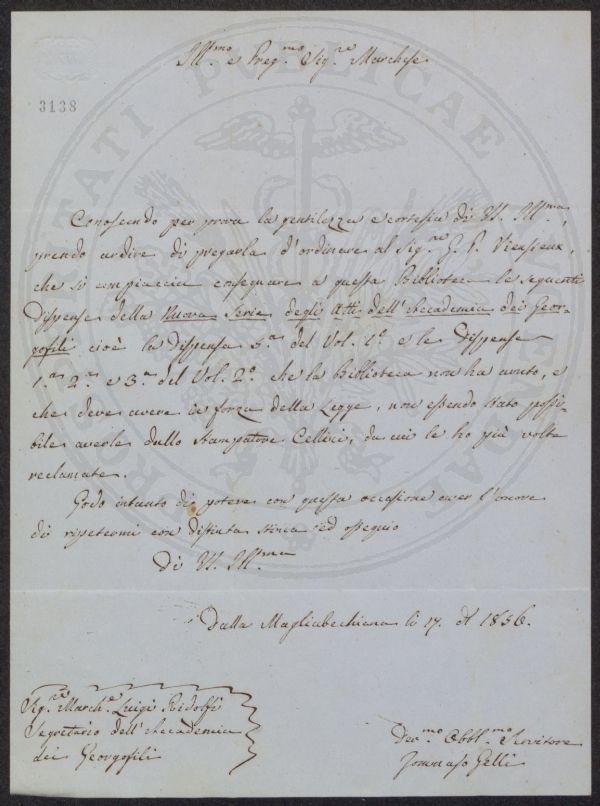 3138
Ill.mo e Preg.mo Sig.re Marchese
Conoscendo per prova la gentilezza e cortesia di V. Ill.ma,
prendo ardire di pregarla d'ordinare al Sig.re G. P. Vieusieux,
che si compiaccia consegnare a questa Biblioteca le seguenti
dispense della Nuova Serie degli Atti dell'Accademia dei Geor-
gofili cioè la dispensa 5.a del Vol. 1.o e le dispense
1.a 2.a e 3.a del Vol. 2.o che la Biblioteca non ha avuto, e
che deve avere in forza della Legge, non essendo stato possi-
bile averle dallo Stampatore Cellini, da cui le ho più volte
reclamate.
Godo intanto di potere con questa occasione aver l'onore
di ripetermi con distinta stima ed ossequio
Di V. Ill.ma
Dalla Magliabechiana li 17. 1856.
Sig.re March.e Luigi Ridolfi
Segretario dell'Accademia
dei Georgofili
Dev.mo Obbl.mo Servitore
Tommaso Gelli
REI PUBLICAE